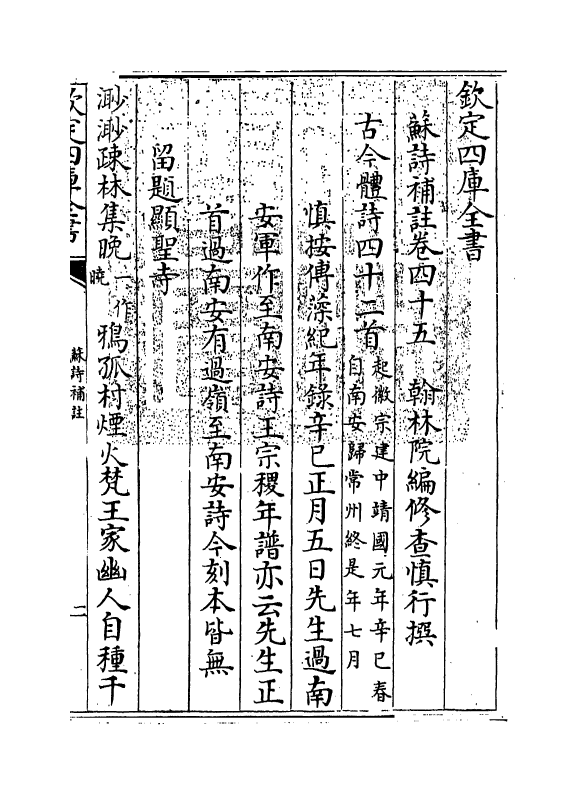 欽定四庫全書
蘇詩補註卷四十五　翰林院編修查慎行撰
古今體詩四十二首起徽宗建中靖國元年辛巳春
自南安歸常州終是年七月
慎按傅藻紀年錄辛巳正月五日先生過南
安軍作至南安詩王宗稷年譜亦云先生正
首過南安有過嶺至南安詩今刻本皆無
留題顯聖寺
渺渺疎林集晚一作
曉鴉孤村煙火梵王家幽人自種千
欽定四庫全書
蘇詩補註
二